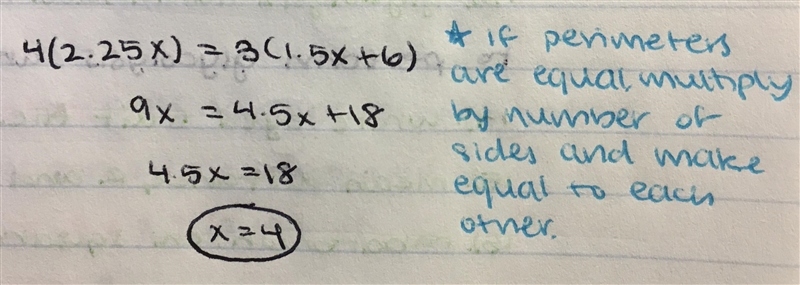 4(2.25x) = 3(1.5x+6)
9x = 4.5x+18
4.5x = 18
x = 4
* if perimeters
are equal, multiply
by number of
sides and make
equal to each
other.